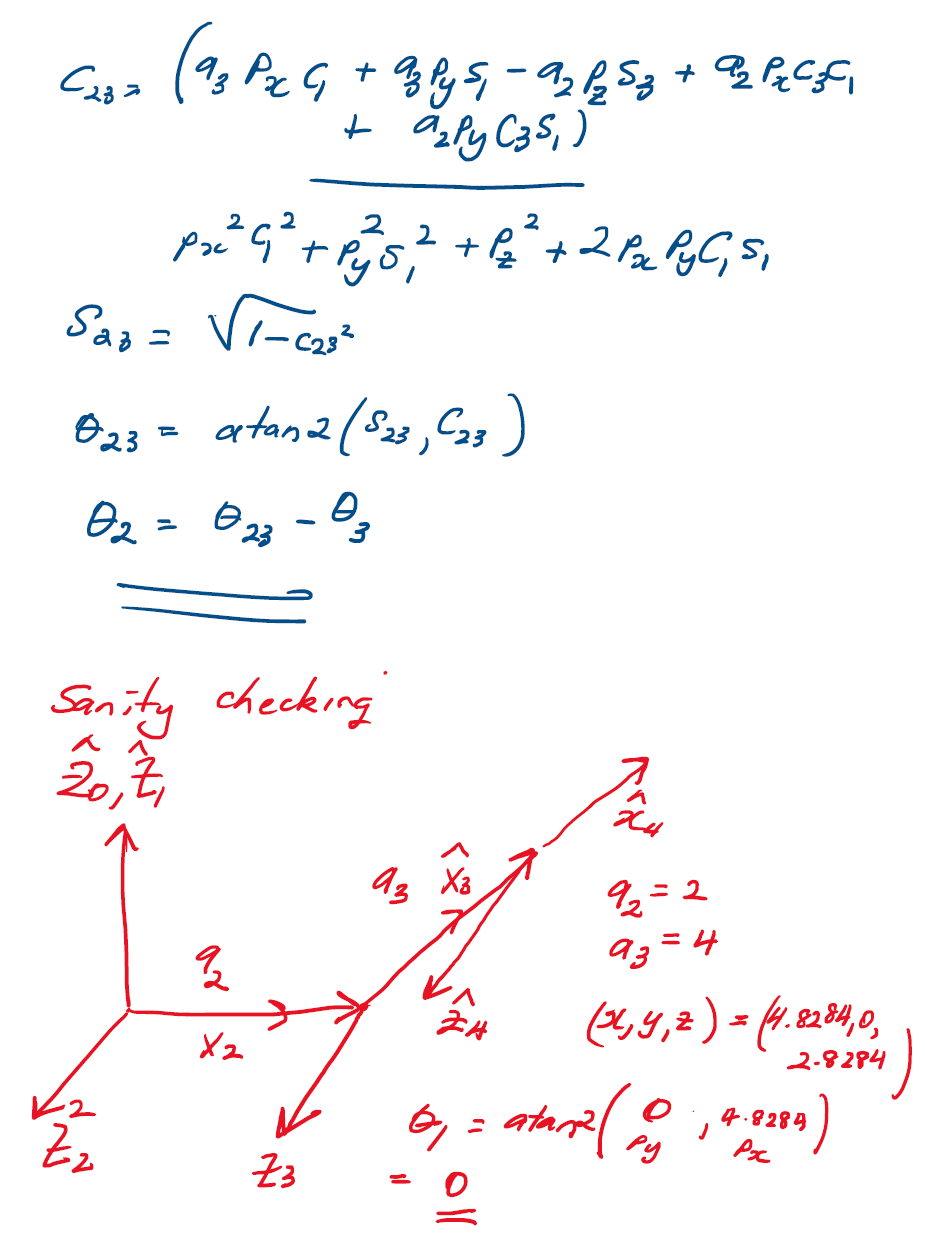 C₂₃ = (a₃ Pₓ C₁ + a₃ Py S₁ - a₂ Pz S₃ + a₂ Pₓ C₃ C₁
+ a₂ Py C₃ S₁)
Pₓ² C₁² + Py² S₁² + Pz² + 2 Pₓ Py C₁ S₁
S₂₃ = √1-C₂₃²
θ₂₃ = atan2(S₂₃, C₂₃)
θ₂ = θ₂₃ - θ₃
Sanity checking
Ẑ₀, Ẑ₁
x̂₄
a₃ X̂₃
a₂ = 2
a₃ = 4
a₂
X₂
ẑ₄
(x, y, z) = (4.8284, 0,
2.8284)
Z₂
Z₃
θ₁ = atan2(0, 4.8284)
Py Pₓ
= 0